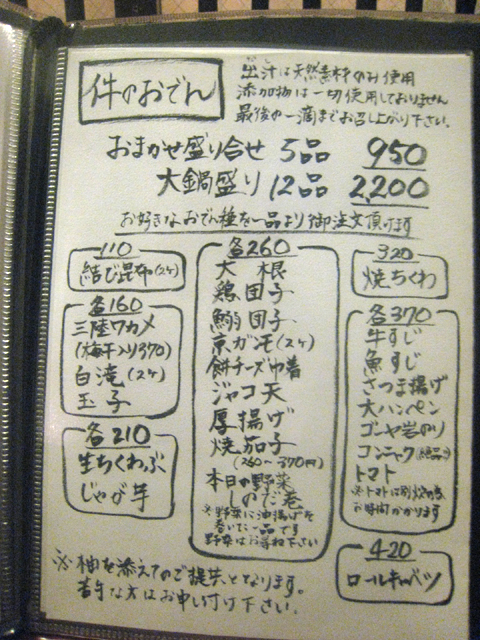 件のおでん
出汁は天然素材のみ使用
添加物は一切使用しておりません
最後の一滴までお召し上がり下さい。
おまかせ盛り合せ 5品 950
大鍋盛り 12品 2,200
お好きなおでん種を一品より御注文頂けます
110
結び昆布(2ヶ)
各160
三陸ワカメ
(梅干入り370)
白滝(2ヶ)
玉子
各210
生ちくわぶ
じゃが芋
各260
大根
鶏団子
鰯団子
京ガンモ(2ヶ)
餅チーズ巾着
ジャコ天
厚揚げ
焼茄子
(260〜370円)
本日の野菜
しのだ巻
※野菜に油揚げを
巻いた一品です
野菜はお尋ね下さい
320
焼ちくわ
各370
牛すじ
魚すじ
さつま揚げ
大ハンペン
ゴーヤ岩のり
コンニャク(絶品!)
トマト
※トマトは別炊の為
お時間かかります
420
ロールキャベツ
※柚を添えてのご提供となります。
苦手な方はお申し付け下さい。